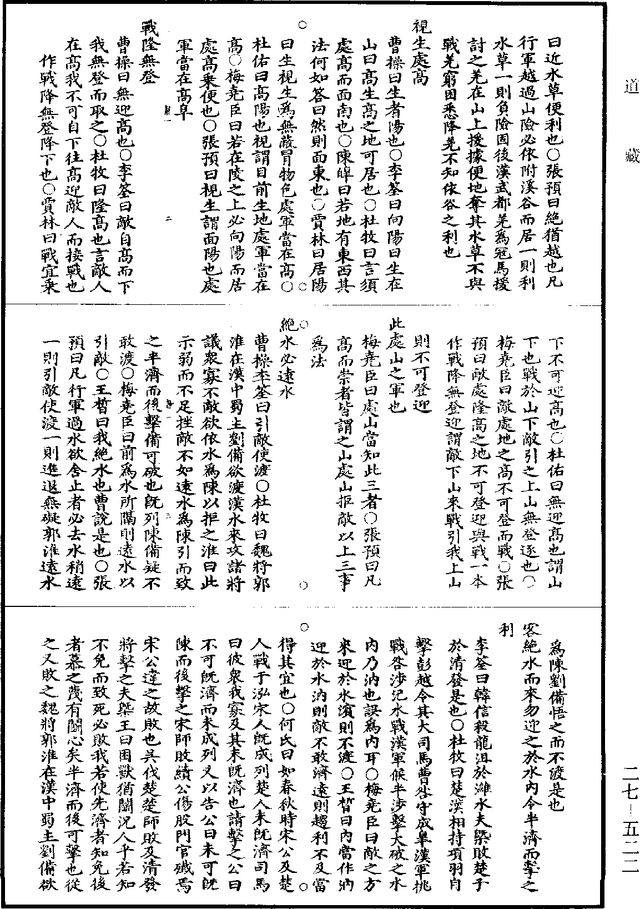 道藏
曰近水草便利也○張預曰絕猶越也凡
行軍越過山險必依附溪谷而居一則利
水草一則負險固後漢武都羌為寇馬援
討之羌在山上援據便地奪其水草不與
戰羌窮困悉降羌不知依谷之利也
視生處高
曹操曰生者陽也○李筌曰向陽曰生在
山曰高生高之地可居也○杜牧曰言須
處高而面南也○陳皞曰若地有東西其
法何如答曰然則面東也○賈林曰居陽
曰生視生為無蔽冒物色處軍當在高○
杜佑曰高陽也視謂目前生地處軍當在
高○梅堯臣曰若在陵之上必向陽而居
處高乘便也○張預曰視生謂面陽也處
軍當在高阜
戰隆無登
曹操曰無迎高也○李筌曰敵自高而下
我無登而取之○杜牧曰隆高也言敵人
在高我不可自下往高迎敵人而接戰也
作戰降無登降下也○賈林曰戰宜乘
下不可迎高也○杜佑曰無迎高也謂山
下也戰於山下敵引之上山無登逐也○
梅堯臣曰敵處地之高不可登而戰○張
預曰敵處隆高之地不可登迎與戰一本
作戰降無登迎謂敵下山來戰引我上山
則不可登迎
此處山之軍也
梅堯臣曰處山當知此三者○張預曰凡
高而崇者皆謂之山處山拒敵以上三事
為法
絕水必遠水
曹操李筌曰引敵使渡○杜牧曰魏將郭
淮在漢中蜀主劉備欲渡漢水來攻諸將
議眾寡不敵欲依水為陳以拒之淮曰此
示弱而不足挫敵不如遠水為陳引而致
之半濟而後擊備可破也既列陳備疑不
敢渡○梅堯臣曰前為水所隔則遠水以
引敵○王晳曰我絕水也曹說是也○張
預曰凡行軍過水欲舍止者必去水稍遠
一則引敵使渡一則進退無礙郭淮遠水
為陳劉備悟之而不渡是也
客絕水而來勿迎之於水內令半濟而擊之
利
李筌曰韓信殺龍沮於濰水夫槩敗楚子
於清發是也○杜牧曰楚漢相持項羽自
擊彭越令其大司馬曹咎守成皋漢軍挑
戰咎涉汜水戰漢軍候半涉擊大破之水
內乃汭也誤為內耳○梅堯臣曰敵之方
來迎於水濱則不渡○王晳曰內當作汭
迎於水汭則敵不敢濟遠則趨利不及當
得其宜也○何氏曰如春秋時宋公及楚
人戰于泓宋人既成列楚人未既濟司馬
曰彼眾我寡及其未既濟也請擊之公曰
不可既濟而未成列又以告公曰未可既
陳而後擊之宋師敗績公傷股門官殲焉
宋公違之故敗也吳伐楚楚師敗及清發
將擊之夫槩王曰困獸猶鬬況人乎若知
不免而致死必敗我若使先濟者知免後
者慕之蔑有鬬心矣半濟而後可擊也從
之又敗之魏將郭淮在漢中蜀主劉備欲
二七-五二二